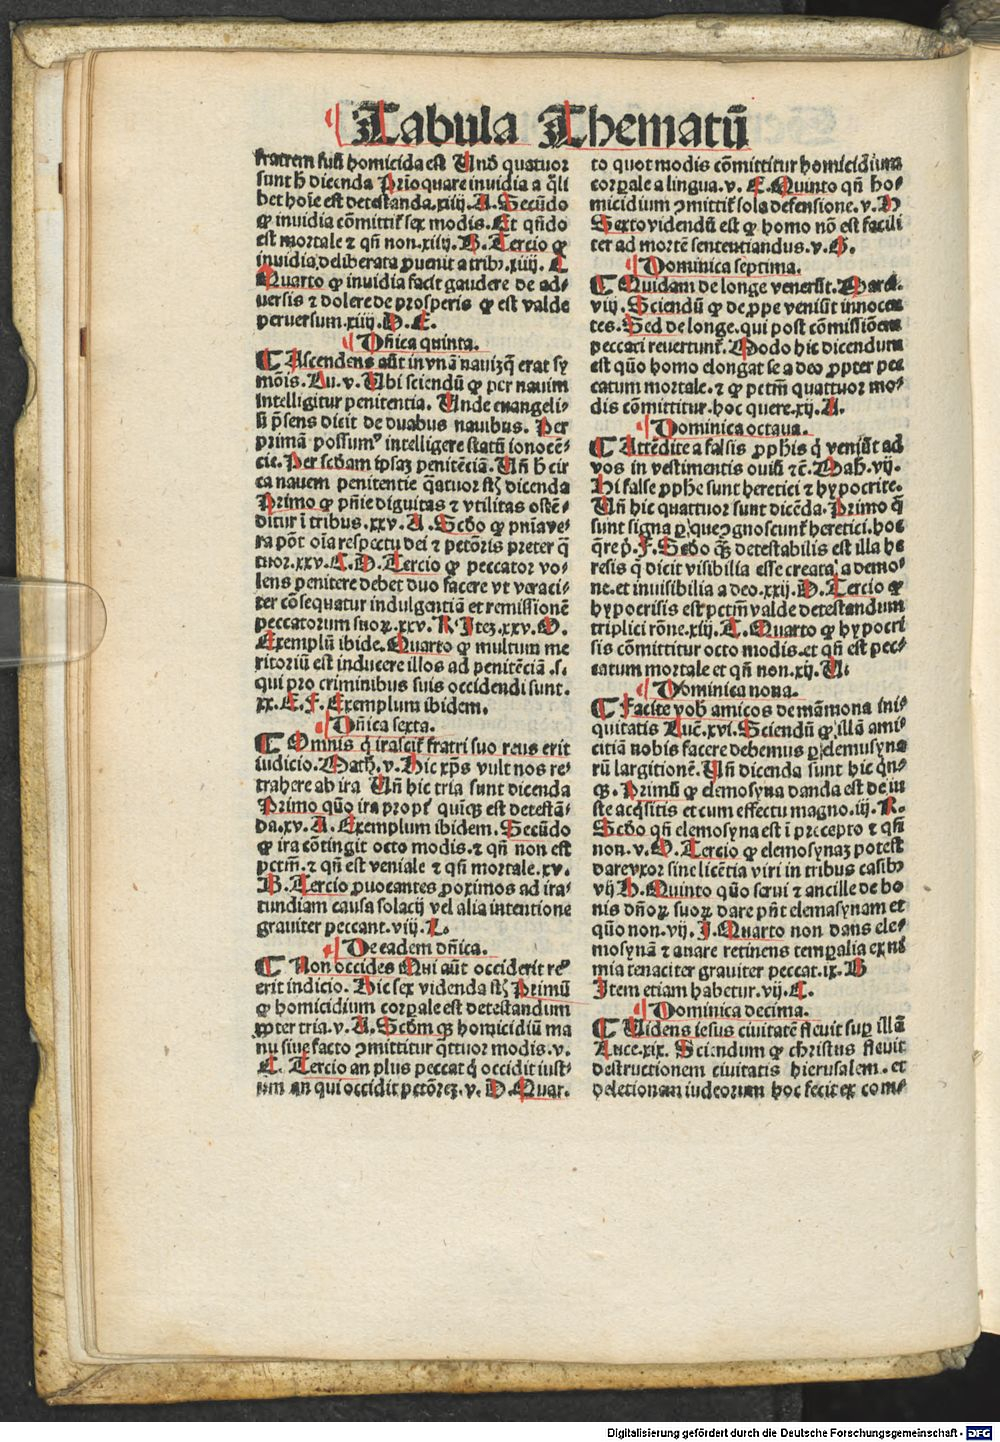 Tabula Thematū
fratrem suū homicida est Unde quatuor
sunt h̄ dicenda Prīo quare inuidia a q̄li
bet hoīe est detestanda.xiiij.A. Secūdo
ꝙ inuidia cōmittit᷑ sex modis. Et qn̄do
est mortale ⁊ qn̄ non.xiiij.B. Tercio ꝙ
inuidia deliberata ꝓuenit a tribꝰ.xiiij.C
Quarto ꝙ inuidia facit gaudere de ad-
uersis ⁊ dolere de prosperis ꝙ est valde
peruersum.xiiij.D.E.
Dn̄ica quinta.
Ascendens aūt in vnā nauiʒ q̄ erat sy
mōis. Lu.v. Ubi sciendū ꝙ per nauim
intelligitur penitentia. Unde euangeli-
sta p̄sens dicit de duabus nauibus. Per
primā possumꝰ intelligere statū inocē-
cie. Per scd̄am ipsaʒ penitēciā. Un̄ h̄ cir
ca nauem penitentie q̄tuor st̄ dicenda
Primo ꝙ pn̄ie diguitas ⁊ vtilitas ostē-
ditur ī tribus.xxv.A. Scd̄o ꝙ pnīa ve-
ra pōt oīa respectu dei ⁊ pctōris preter q̄
tuor.xxv.C.D. Tercio ꝙ peccator vo-
lens penitere debet duo facere vt veraci-
ter cōsequatur indulgentiā et remissionē
peccatorum suoꝝ.xxv.K. Iteʒ.xxv.O.
Exemplū ibide. Quarto ꝙ multum me
ritoriū est inducere illos ad penitēciā .s.
qui pro criminibus suis occidendi sunt.
xx.E.F. Exemplum ibidem.
Dn̄ica sexta.
Omnis q̄ irascit᷑ fratri suo reus erit
iudicio. Math̄.v. Hic xp̄s vult nos re-
trahere ab ira Un̄ hic tria sunt dicenda
Primo quō ira propt᷑ quiqʒ est detestā-
da.xv.A. Exemplum ibidem. Secūdo
ꝙ ira cōtingit octo modis.⁊ qn̄ non est
pctm̄.⁊ qn̄ est veniale ⁊ qn̄ mortale.xv.
B. Tercio ꝓuocantes ꝓximos ad ira-
cundiam causa solacij vel alia intentione
grauiter peccant.viij.L.
De eadem dn̄ica.
Non occides Qui aūt occiderit re⁹
erit indicio. Hic sex videnda st̄ Primū
ꝙ homicidium corꝑale est detestandum
ꝓpter tria.v.A. Scd̄m qʒ homicidiū ma
nu siue facto ↄmittitur q̄ttuor modis.v.
C. Tercio an plus peccat q̄ occidit iust-
um an qui occidit pctōreʒ.v.D. Quar-
to quot modis cōmittitur homicidium
corꝑale a lingua.v.E. Quinto qn̄ ho-
micidium ↄmittit᷑ sola defensione.v.H
Sexto videndū est ꝙ homo nō est facili
ter ad mortē sententiandus.v.G.
Dominica septima.
Quidam de longe venerūt. Marci.
viij. Sciendū ꝙ de ꝓpe veniūt innocen
tes. Sed de longe.qui post cōmissiōem
peccati reuertunt᷑. Modo hic dicendum
est quō homo elongat se a deo ꝓpter pec
catum mortale.⁊ ꝙ pctm̄ quattuor mo-
dis cōmittitur.hoc quere.xij.A.
Dominica octaua.
Attēdite a falsis ꝓphis q̄ veniūt ad
vos in vestimentis ouiū ⁊c̄. Math̄.vij.
Hi false ꝓphe sunt heretici ⁊ hypocrite.
Un̄ hic quattuor sunt dicēda. Primo q̄
sunt signa ꝑ que ↄgnoscunt᷑ heretici.hoc
q̄re p̄.F. Scd̄o qʒ detestabilis est illa he
resis q̄ dicit visibilia esse creata a demo-
ne.et inuisibilia a deo.xxij.D. Tercio ꝙ
hypocrisis est pctm̄ valde detestandum
triplici rōne.xlij.A. Quarto ꝙ hypocri
sis cōmittitur octo modis.et qn̄ est pec-
catum mortale et qn̄ non.xij.
Dominica nona.
Facite vob̄ amicos de māmona ini-
quitatis Luc̄.xvi. Sciendū ꝙ illā ami
citiā nobis facere debemus ꝑ elemusyna
rū largitionē. Un̄ dicenda sunt hic q̄n-
qʒ. Primū ꝙ elemosyna danda est de iu
ste acq̄sitis et cum effectu magno.iij.R.
Scd̄o qn̄ elemosyna est ī precepto ⁊ qn̄
non.v.O. Tercio ꝙ elemosynaʒ potest
dare vxor sine licētia viri in tribus casibꝰ
vij H. Quinto quō serui ⁊ ancille de bo
nis dn̄oꝝ suoꝝ dare pn̄t elemasynam et
quō non.vij.I. Quarto non dans ele-
mosynā ⁊ auare retinens temꝑalia ex ni
mia tenaciter grauiter peccat.ix.B
Item etiam habetur.vij.C.
Dominica decima.
Uidens iesus ciuitatē fleuit suꝑ illā
Luce.xix. Sciendum ꝙ christus fleuit
destructionem ciuitatis hierusalem.et
deletionam iudeorum hoc fecit ex com-
Digitalisierung gefördert durch die Deutsche Forschungsgemeinschaft - DFG